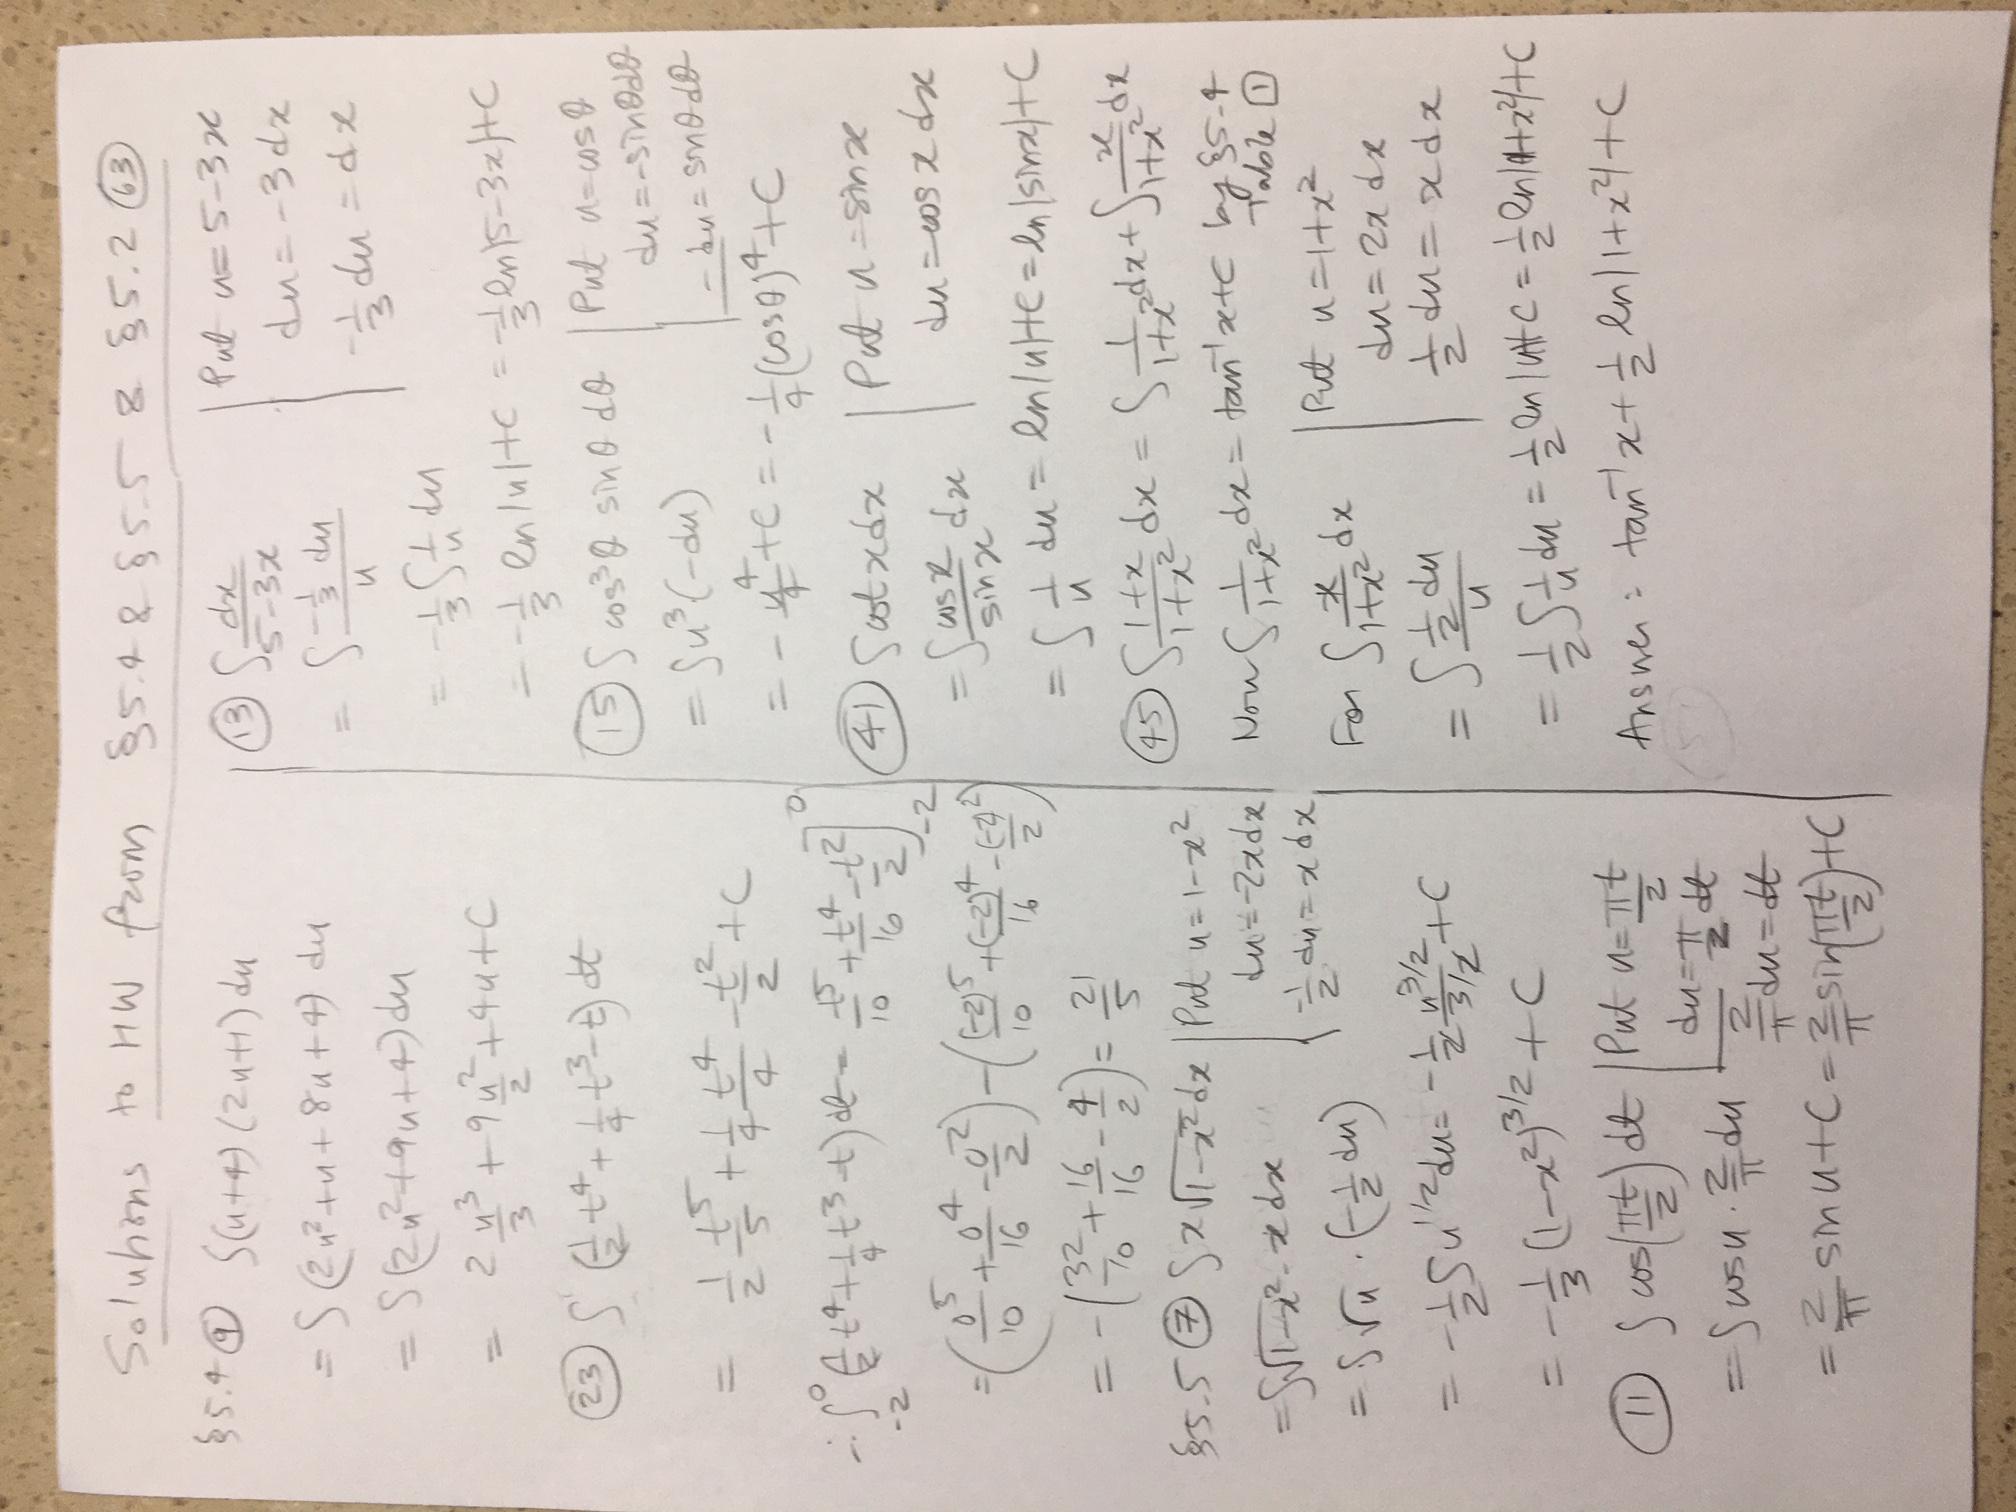 Solutions to HW from §5.4 & §5.5 & §5.2 (63)
§5.4 (9) ∫(u+4)(2u+1)du
= ∫(2u²+u+8u+4) du
= ∫(2u²+9u+4)du
= 2 u³/3 + 9 u²/2 + 4u + C
(23) ∫(½t⁴ + ¼t³ - t) dt
= ½ t⁵/5 + ¼ t⁴/4 - t²/2 + C
∴ ∫₋₂⁰ (½t⁴ + ¼t³ - t)dt = t⁵/10 + t⁴/16 - t²/2 ]₋₂⁰
= (0⁵/10 + 0⁴/16 - 0²/2) - ((-2)⁵/10 + (-2)⁴/16 - (-2)²/2)
= -(-32/10 + 16/16 - 4/2) = 21/5
§5.5 (7) ∫x√(1-x²) dx | Put u = 1-x²
du = -2x dx
-½ du = x dx
= ∫√(1-x²) · x dx
= ∫√u · (-½ du)
= -½ ∫u^(1/2) du = -½ u^(3/2)/(3/2) + C
= -⅓ (1-x²)^(3/2) + C
(11) ∫cos(πt/2) dt | Put u = πt/2
du = π/2 dt
2/π du = dt
= ∫cos u · 2/π du
= 2/π sin u + C = 2/π sin(πt/2) + C
(13) ∫ dx/(5-3x) | Put u = 5-3x
du = -3dx
-⅓ du = dx
= ∫ (-⅓ du)/u
= -⅓ ∫ 1/u du
= -⅓ ln|u| + C = -⅓ ln|5-3x| + C
(15) ∫cos³θ sinθ dθ | Put u = cosθ
du = -sinθdθ
-du = sinθdθ
= ∫u³(-du)
= -u⁴/4 + C = -¼(cosθ)⁴ + C
(41) ∫cot x dx | Put u = sin x
du = cos x dx
= ∫ cos x/sin x dx
= ∫ 1/u du = ln|u| + C = ln|sin x| + C
(45) ∫ (1+x)/(1+x²) dx = ∫ 1/(1+x²) dx + ∫ x/(1+x²) dx
Now ∫ 1/(1+x²) dx = tan⁻¹x + C by §5.4 Table 1
For ∫ x/(1+x²) dx | Put u = 1+x²
du = 2x dx
½ du = x dx
= ∫ (½ du)/u
= ½ ∫ 1/u du = ½ ln|u| + C = ½ ln|1+x²| + C
Answer: tan⁻¹x + ½ ln|1+x²| + C